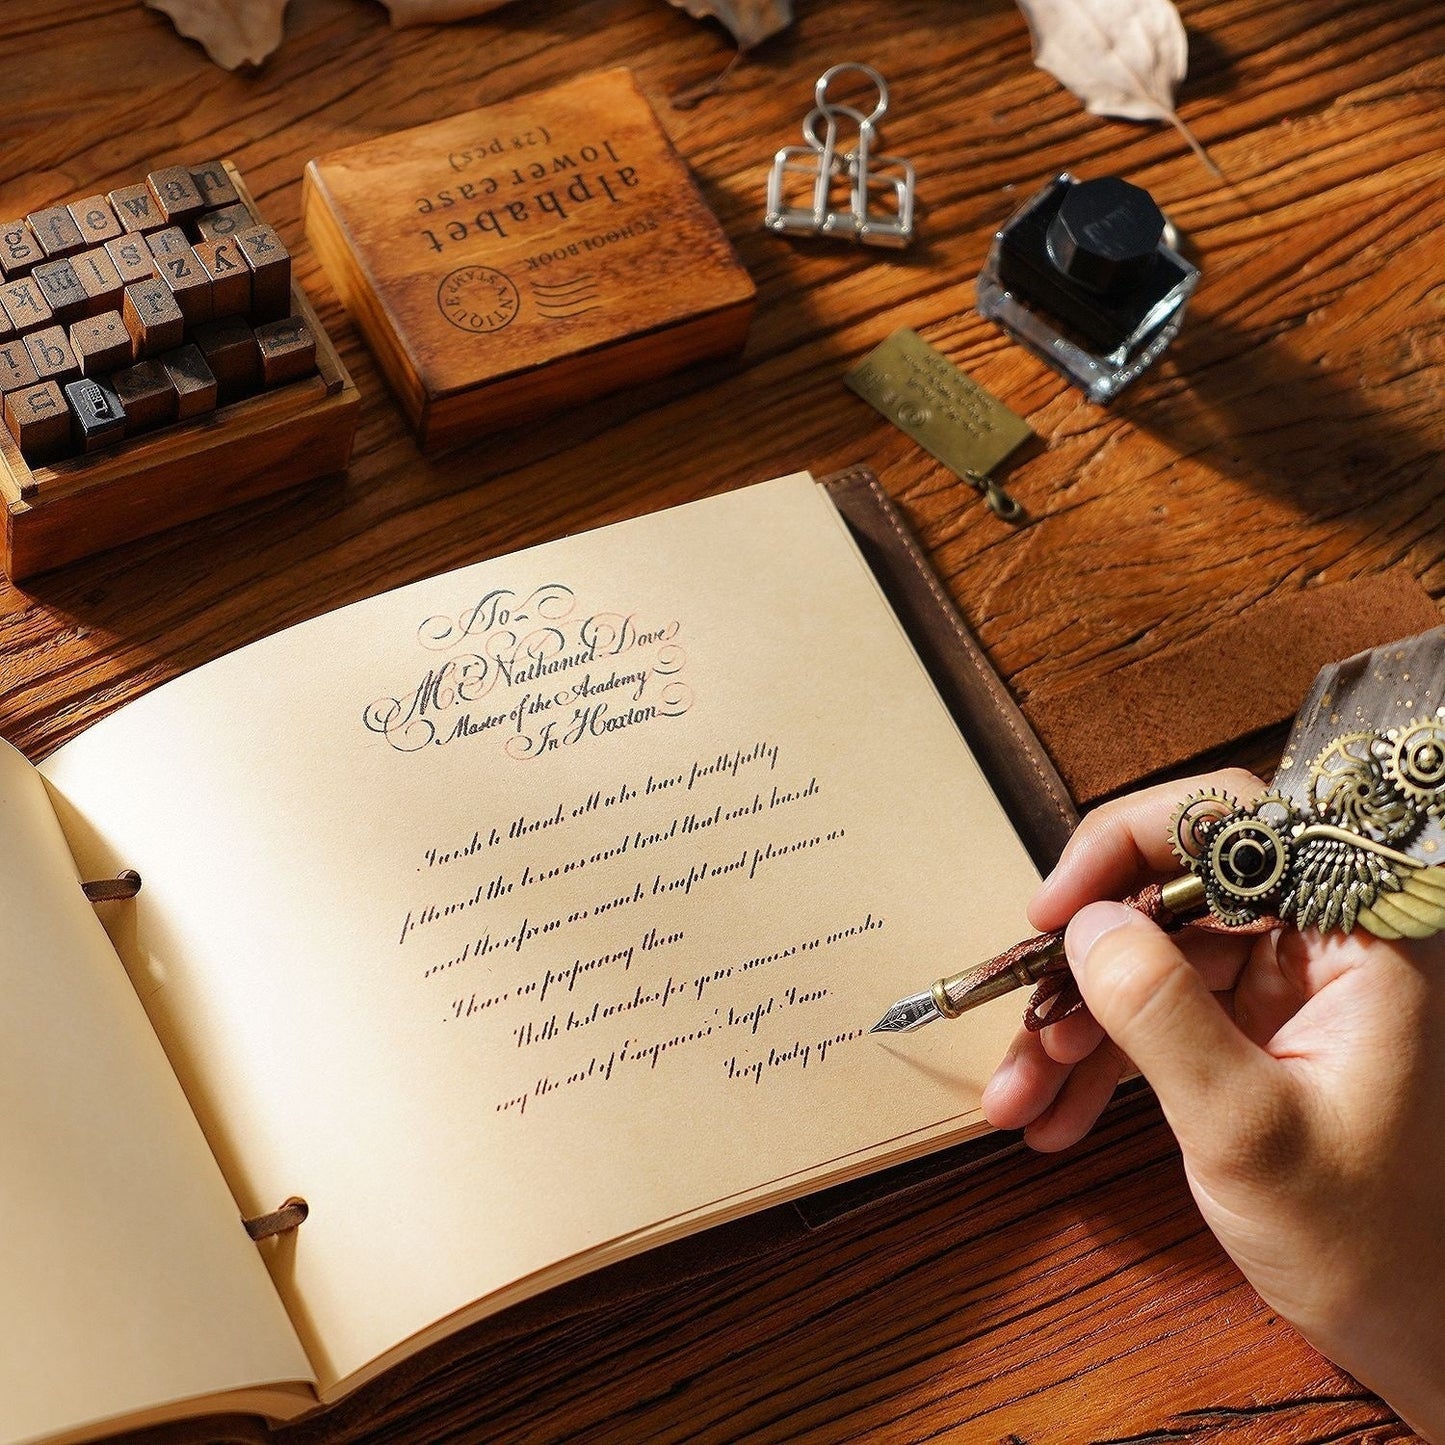 g f e w a n
k m l s f o
z y x
r
i q b
u
alphabet
lower case
(28 pcs)
SCHOOLBOOK
ANTIQUE STAMP
To
Mr. Nathaniel Dove
Master of the Academy
In Hoxton
I wish to thank all who have faithfully
followed the lessons and trust that each has de
rived therefrom as much benefit and pleasure as
I have in preparing them
With best wishes for your success in master
ing the art of Engravers' Script I am
Very truly yours